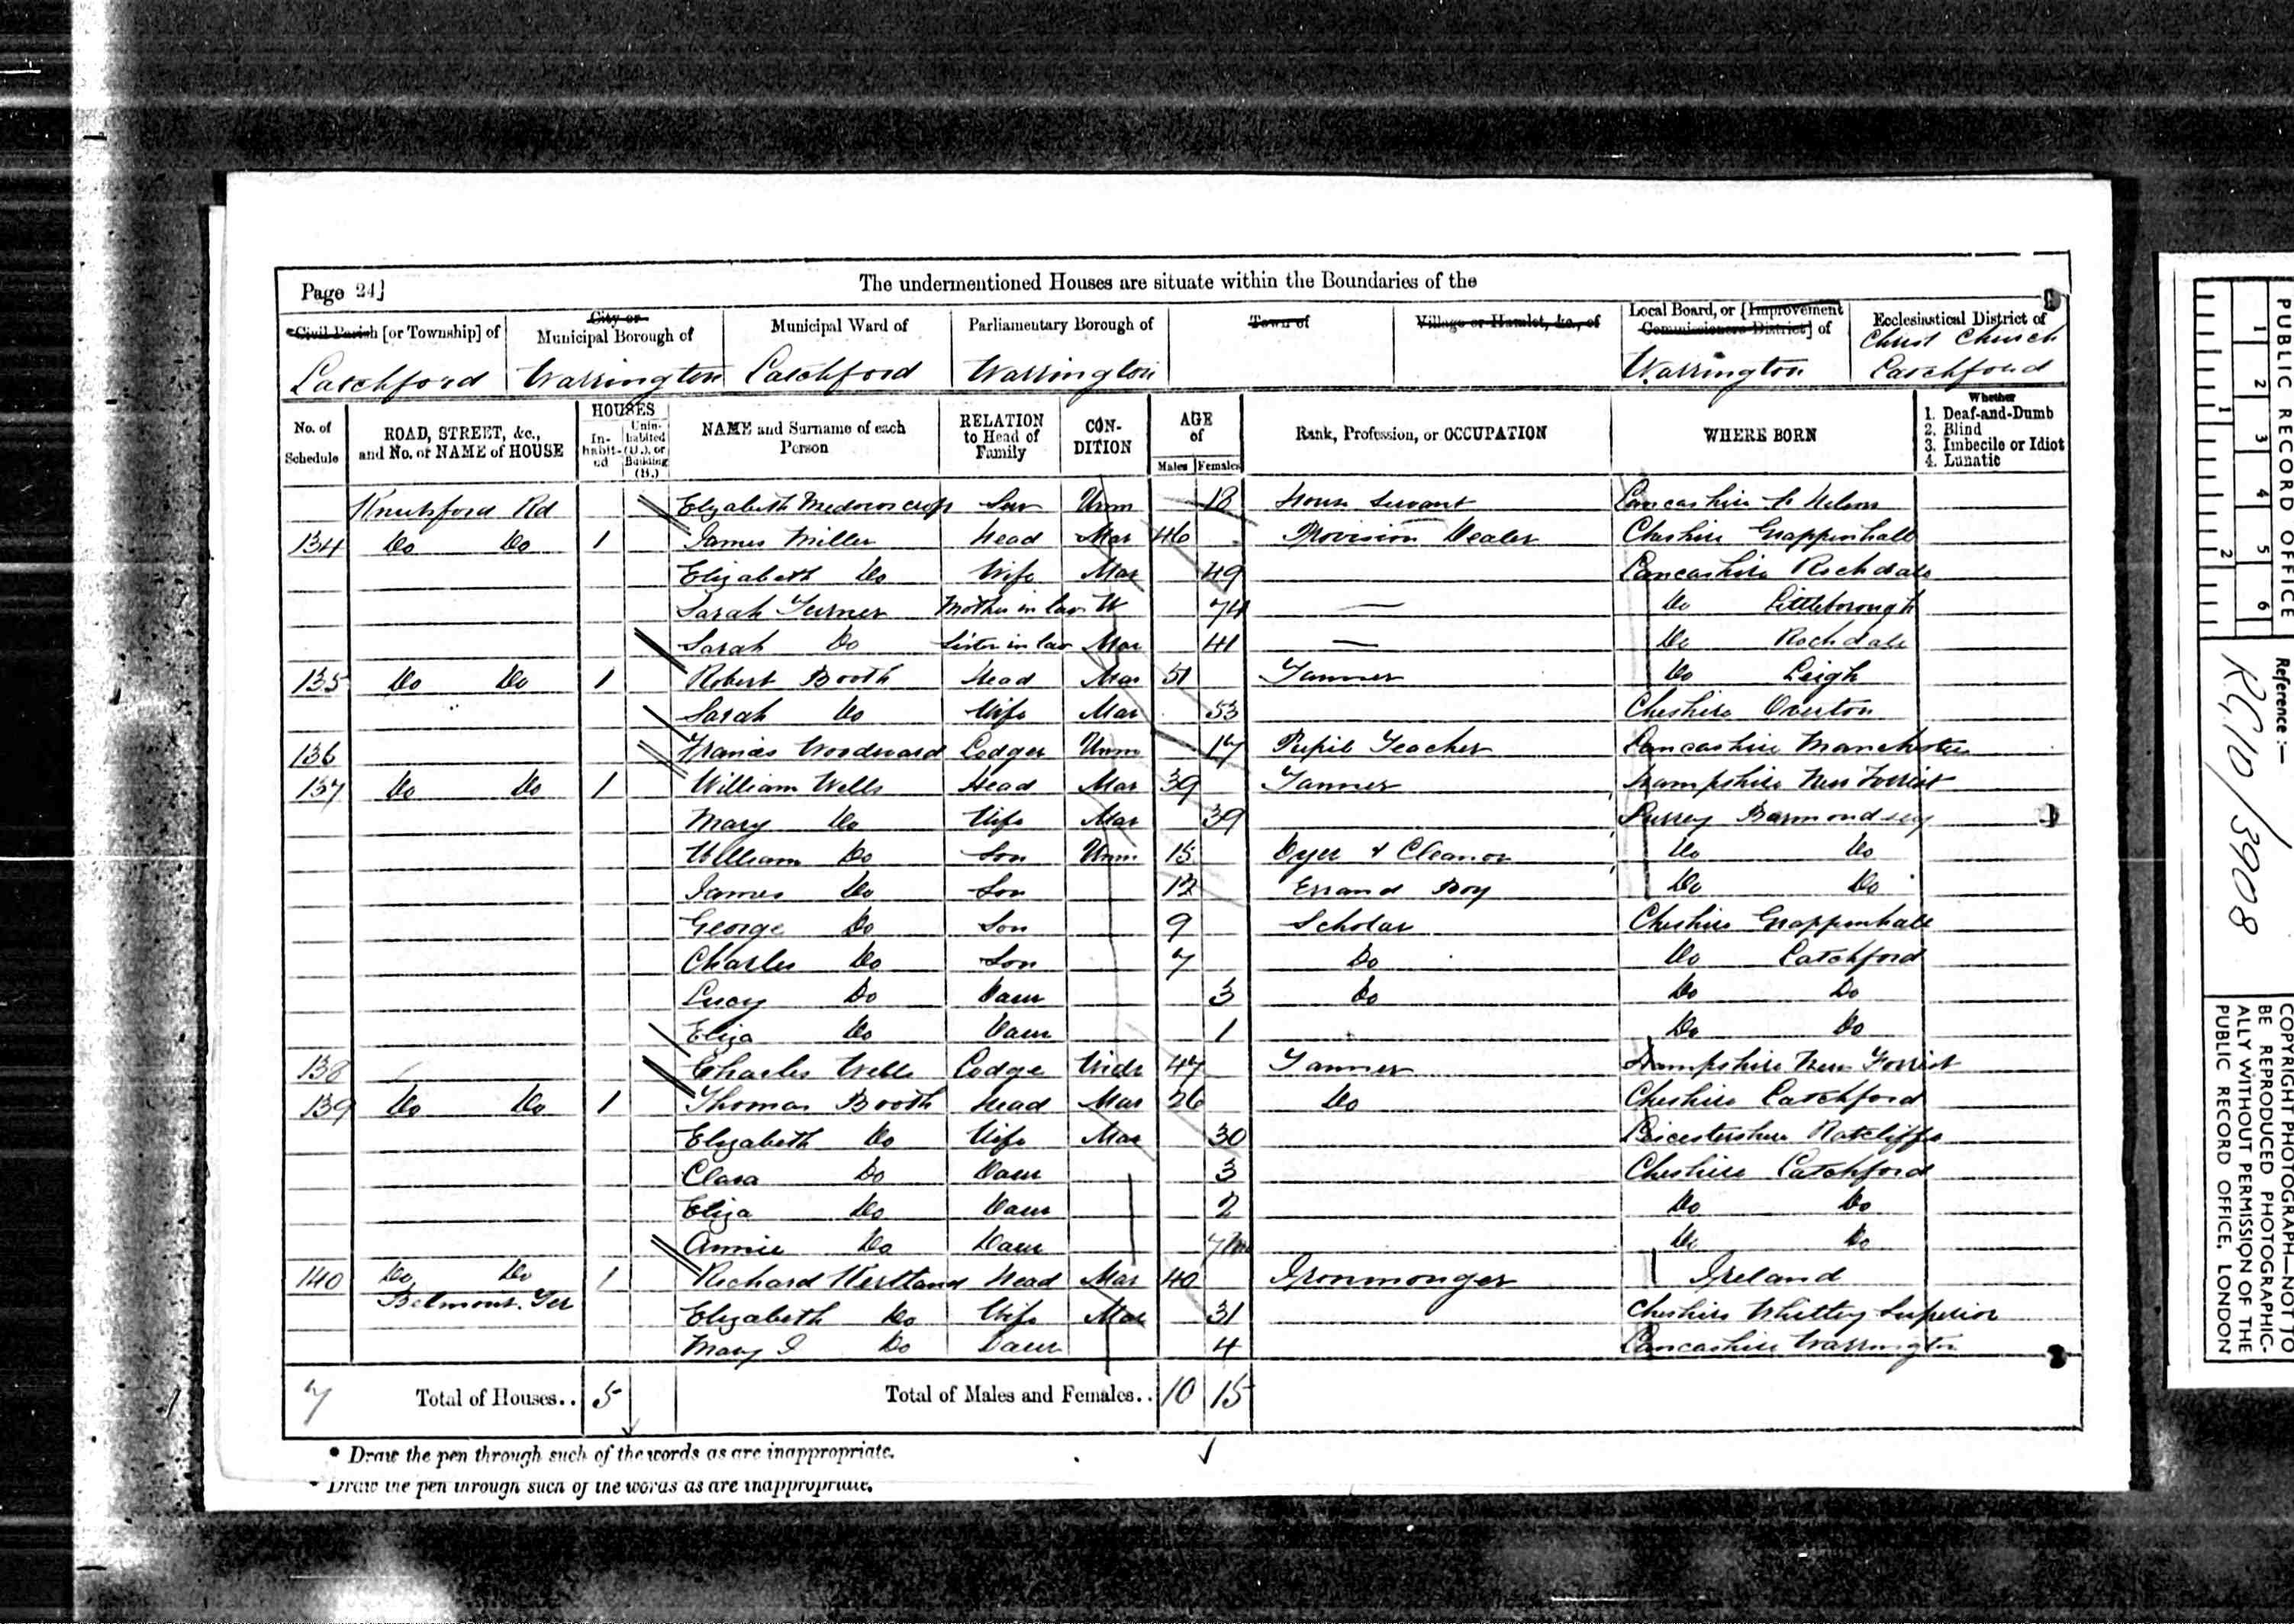 The undermentioned Houses are situate within the Boundaries of the
Page 24]
*Civil Parish [or Township] of
City or Municipal Borough of
Municipal Ward of
Parliamentary Borough of
Town of
Village or Hamlet, &c., of
Local Board, or [Improvement Commissioners District] of
Ecclesiastical District of
Latchford Warrington Latchford Warrington Warrington Christ Church Latchford
No. of Schedule
ROAD, STREET, &c., and No. or NAME of HOUSE
HOUSES
In-habit-ed
Unin-habited (U.), or Building (B.)
NAME and Surname of each Person
RELATION to Head of Family
CON-DITION
AGE of
Males Females
Rank, Profession, or OCCUPATION
WHERE BORN
Whether
1. Deaf-and-Dumb
2. Blind
3. Imbecile or Idiot
4. Lunatic
Knutsford Rd Elizabeth Medowcroft Serv Unm 18 House Servant Lancashire St Helens
134 Do Do 1 James Miller Head Mar 46 Provision Dealer Cheshire Grappenhall
Elizabeth Do Wife Mar 49 Lancashire Rochdale
Sarah Turner Mother in law W 74 — Do Littleborough
Sarah Do Sister in law Mar 41 — Do Rochdale
135 Do Do 1 Robert Booth Head Mar 51 Tanner Do Leigh
Sarah Do Wife Mar 53 Cheshire Overton
136 Frances Woodward Lodger Unm 17 Pupil Teacher Lancashire Manchester
137 Do Do 1 William Wells Head Mar 39 Tanner Hampshire New Forrist
Mary Do Wife Mar 39 Surrey Barmondsey
William Do Son Unm 15 Dyer & Cleanor Do Do
James Do Son 12 Errand Boy Do Do
George Do Son 9 Scholar Cheshire Grappenhall
Charles Do Son 7 Do Do Latchford
Lucy Do Daur 3 Do Do Do
Eliza Do Daur 1 Do Do
138 Charles Wells Lodge Widr 47 Tanner Hampshire New Forrist
139 Do Do 1 Thomas Booth Head Mar 26 Do Cheshire Latchford
Elizabeth Do Wife Mar 30 Leicestershire Ratcliffe
Clara Do Daur 3 Cheshire Latchford
Eliza Do Daur 2 Do Do
Annie Do Daur 7m Do Do
140 Do Do 1 Richard Head Mar 40 Ironmonger Ireland
Belmont Ter Elizabeth Do Wife Mar 31 Cheshire Whitley Superior
Mary I Do Daur 4 Lancashire Warrington
7 Total of Houses.. 5 Total of Males and Females.. 10 15
* Draw the pen through such of the words as are inappropriate.
* Draw the pen through such of the words as are inappropriate.
PUBLIC RECORD OFFICE
1 2 3 4 5 6
1 2
Reference :—
RG 10/3908
COPYRIGHT PHOTOGRAPH—NOT TO
BE REPRODUCED PHOTOGRAPHIC-
ALLY WITHOUT PERMISSION OF THE
PUBLIC RECORD OFFICE, LONDON